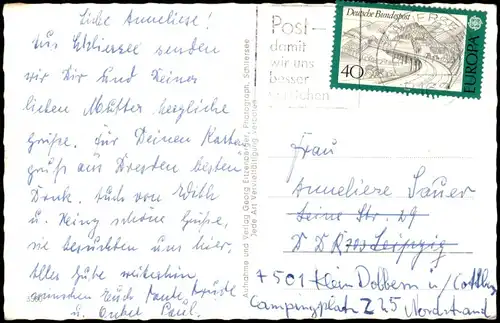 Liebe Anneliese!
Aus Schliersee senden
wir Dir und Deiner
lieben Mutter herzliche
Grüße. Für Deinen Karten-
gruß aus Dresden besten
Dank. Auch von
u. Heinz schöne Grüße,
sie besuchten uns hier.
Alles Gute weiterhin
wünschen Euch Tante
u. Onkel Paul.
Aufnahme und Verlag Georg Photograph, Schliersee
Jede Art Vervielfältigung verboten
Post-
damit
wir uns
besser
verstehen
Deutsche Bundespost
40
EUROPA
Frau
Anneliese Sauer
Seine Str. 29
DDR 705 Leipzig
7501 Klein Döbbern ü/Cottbus
Campingplatz Z 25 Nordstrand